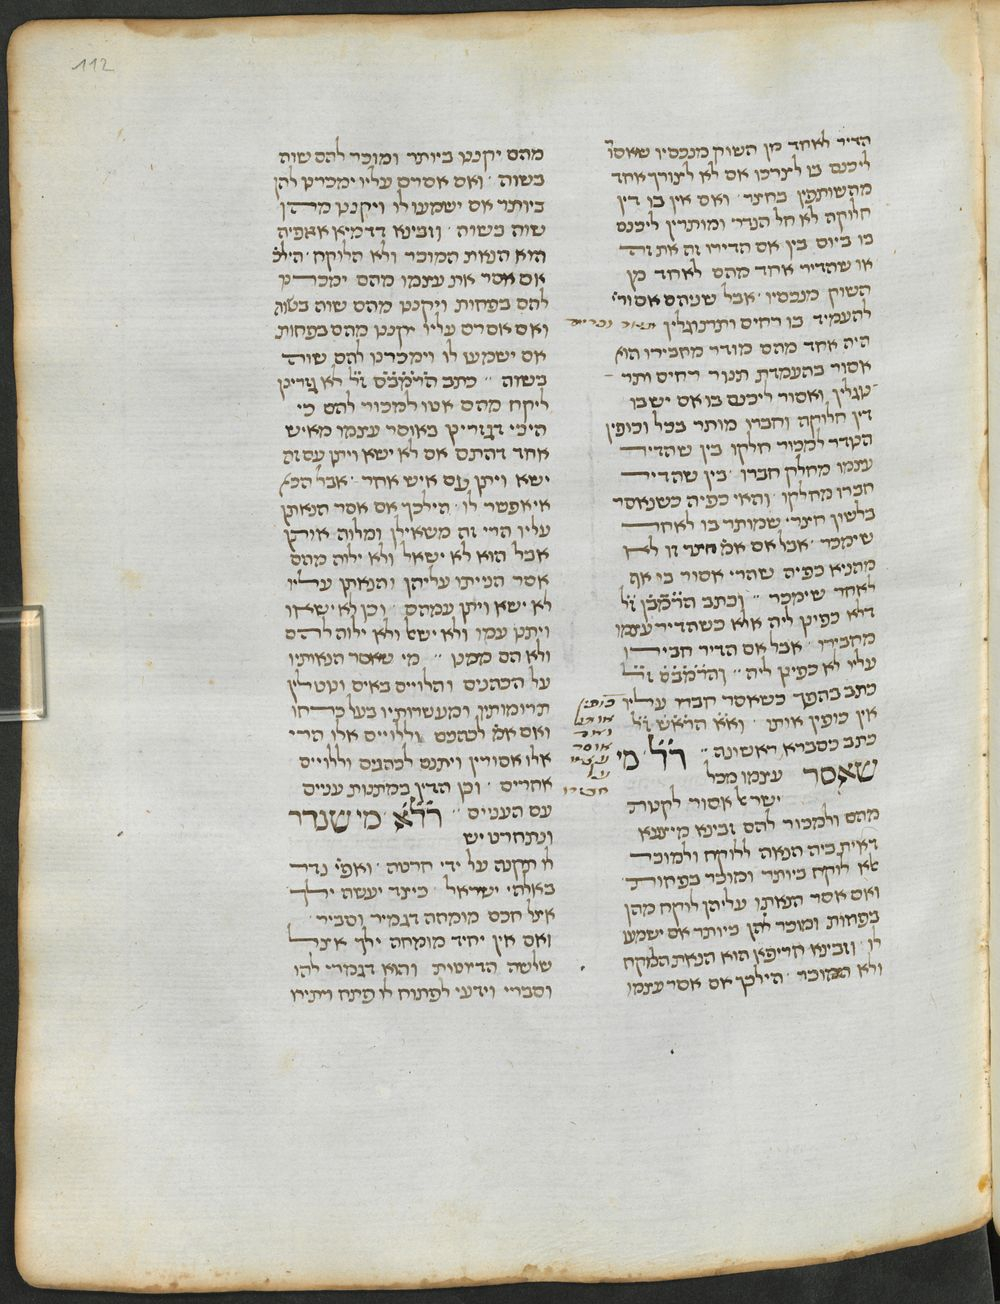 112
הדיר לאחד מן השוק מנכסיו שאסו'
ליכנס בו לצרכו אם לא לצורך אחד
מהשותפין בחצר ואם אין בו דין
חלוקה לא חל הנדר ומותרין ליכנס
בו ביום בין אם הדירו זה את זה
או שהדיר אחד מהם לאחד מן
השוק מנכסיו אבל שניהם אסורי'
להעמיד בו רחים ותרנוגלין
היה אחד מהם מודר מחבירו הוא
אסור בהעמדת תנור רחים ותר
נוגלין ואסור ליכנס בו אם יש בו
דין חלוקה וחברו מותר בכל וכופין
הנודר למכור חלקו בין שהדיר
עצמו מחלק חברו בין שהדיר
חברו מחלקו והאי כפיה כשנאסר
בלשון חצרי שמותר בו לאחר
שימכר אבל אם אמ' חצר זו לא
מהניא כפיה שהרי אסור בו אף
לאחר שימכר וכתב הרמב"ן ז"ל
דלא כפינן ליה אלא כשהדיר עצמו
מחבירו אבל אם הדיר חבירו
עליו לא כפינן ליה והרמב"ם ז"ל
כתב בהפך כשאסר חברו עליו כופין אותו ואם אוסר עצמו על חבירו
אין כופין אותו וא"א הרא"ש ז"ל
כתב כסברא ראשונה רל מי
שאסר עצמו מכל
ישראל אסור לקנות
מהם ולמכור להם זבינא מיצעא
דאית ביה הנאה ללוקח ולמוכר
אלא לוקח ביותר ומוכר בפחות
ואם אסר הנאתו עליהן לוקח מהן
בפחות ומוכר להן ביותר אם ישמעו
לו וזבינא חריפא הוא הנאת הלוקח
ולא המוכר הילכך אם אסר עצמו
מהם יקננו ביותר ומוכר להם שוה
בשוה ואם אסרם עליו ימכרנו להן
ביותר אם ישמעו לו ויקננו מהן
שוה בשוה וזבינא דרמיא אאפיה
הוא הנאת המוכר ולא הלוקח הילכ'
אם אסר את עצמו מהם ימכרנו
להם בפחות ויקננו מהם שוה בשוה
ואם אסרם עליו יקננו מהם בפחות
אם ישמעו לו וימכרנו להם שוה
בשוה כתב הרמב"ם ז"ל לא גזרינן
ליקח מהם אטו למכור להם כי
היכי דגזרינן באוסר עצמו מאיש
אחד דהתם אם לא ישא ויתן עם זה
ישא ויתן עם איש אחר אבל הכא
אי אפשר לו הילכך אם אסר הנאתן
עליו הרי זה משאילן ומלוה אותן
אבל הוא לא ישאל ולא ילוה מהם
אסר הנייתו עליהן והנאתן עליו
לא ישא ויתן עמהם וכן לא ישאו
ויתנו עמו ולא ישאל ולא ילוה להם
ולא הם ממנו מי שאסר הנאותיו
על הכהנים והלויים באים ונוטלין
תרומותיו ומעשרותיו בעל כרחו
ואם אמ' לכהנים וללויים אלו הרי
אלו אסורין ויתנם לכהנים וללויים
אחרים וכן הדין במתנות עניים
עם העניים רלא מי שנדר
ונתחרט יש
לו תקנה על ידי חרטה ואפי' נדר
באלהי ישראל כיצד יעשה ילך
אצל חכם מומחה דגמיר וסביר
ואם אין יחיד מומחה ילך אצל
שלשה הדיוטות והוא דגמרי להו
וסברי וידעי לפתוח לו פתח ויתירו